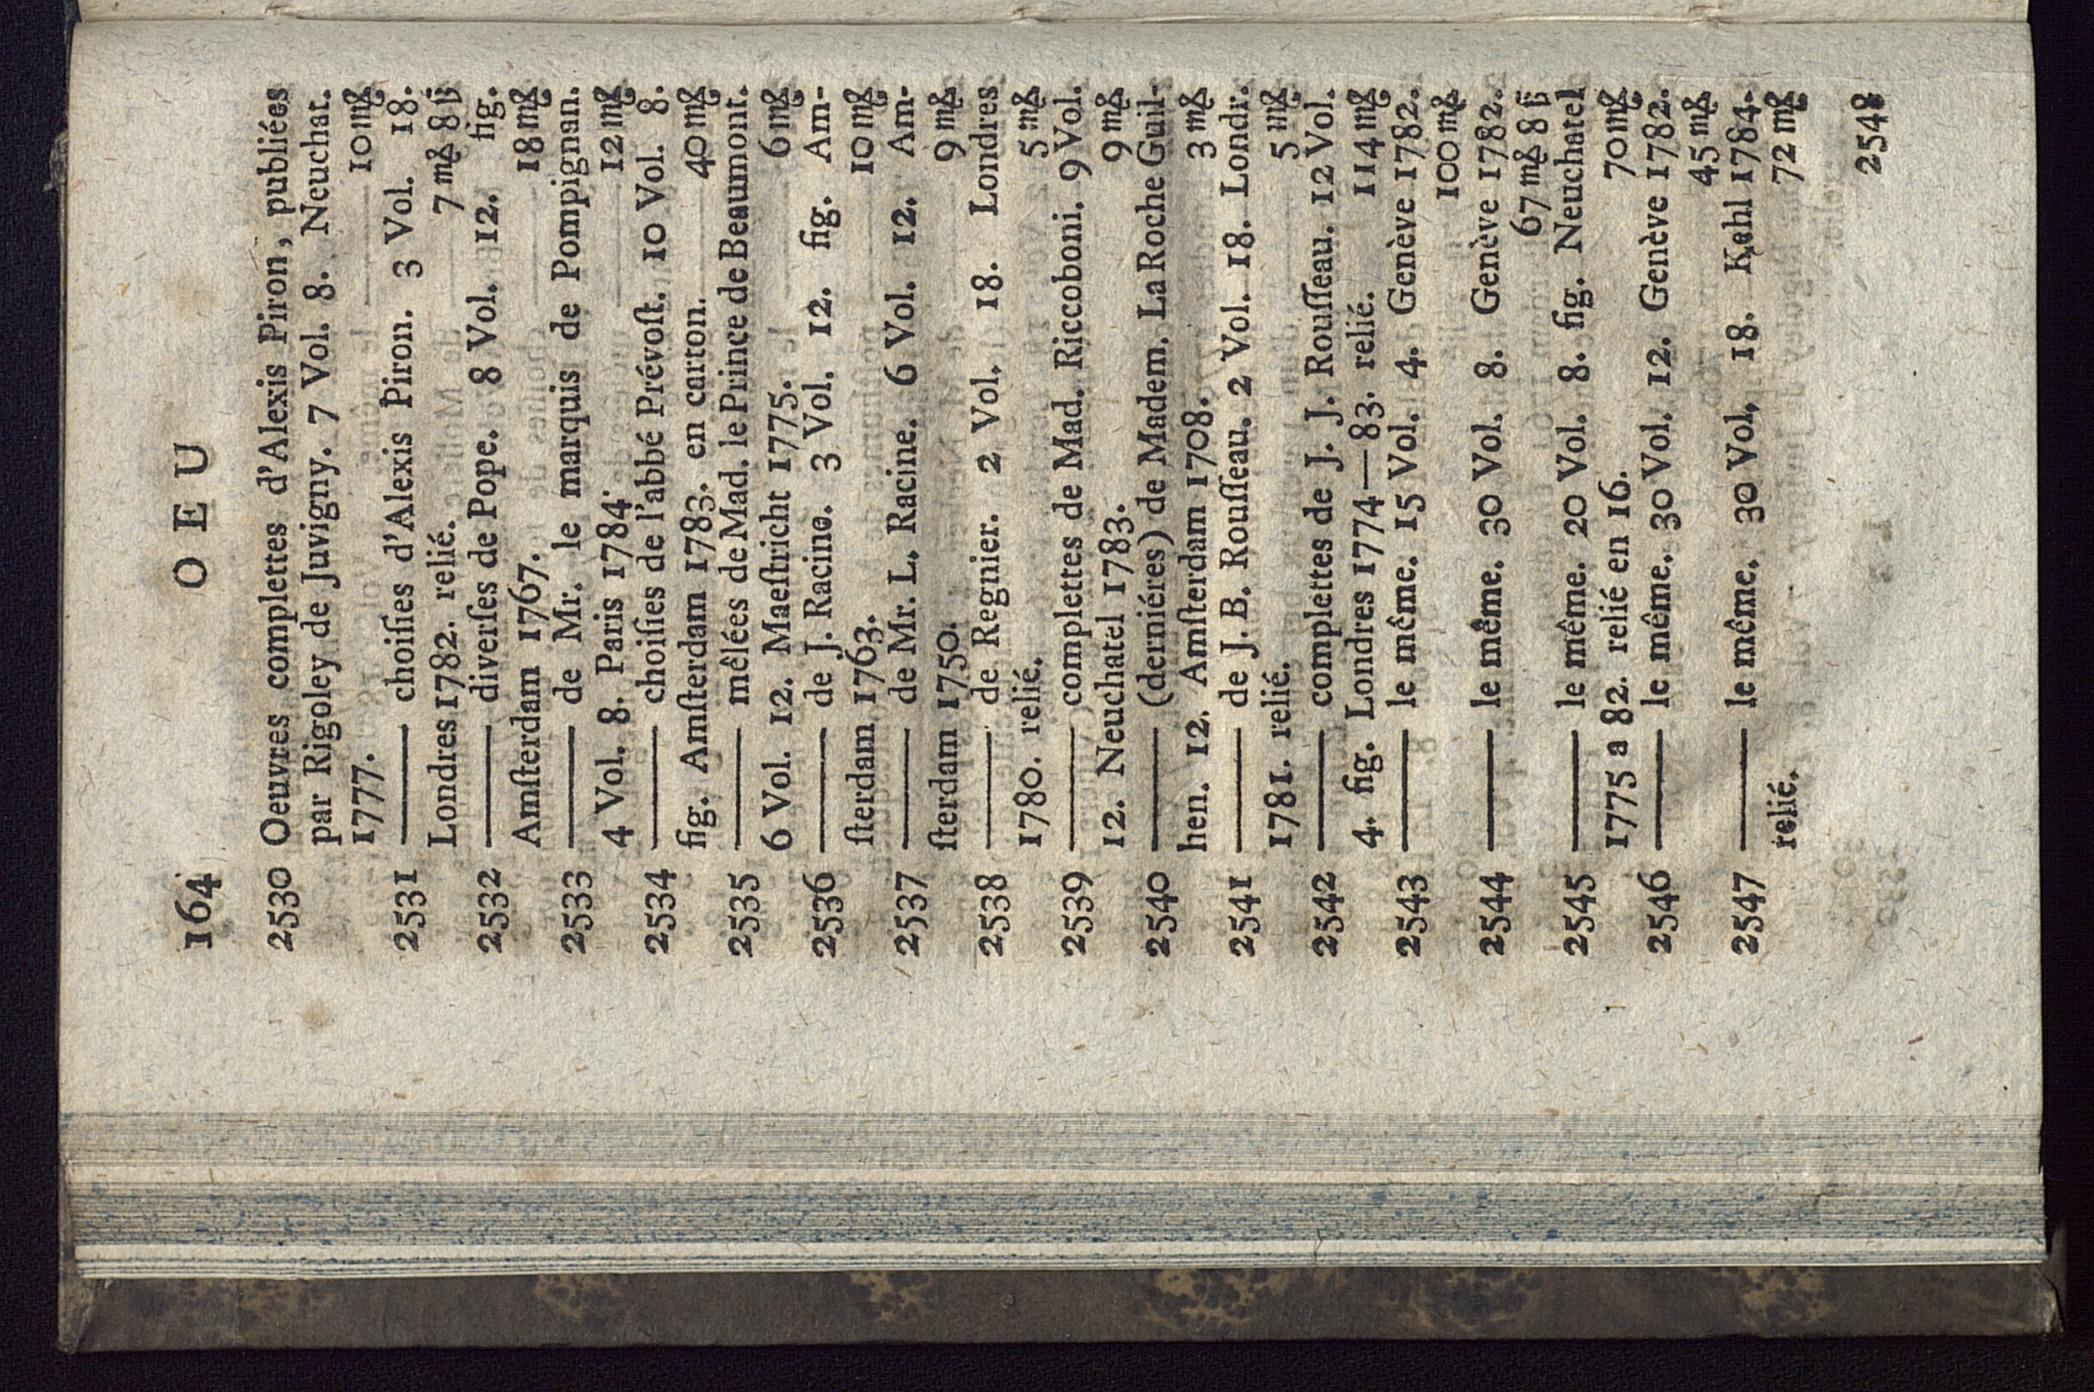 164 O E U
2530 Oeuvres complettes d'Alexis Piron, publiées
par Rigoley de Juvigny. 7 Vol. 8. Neuchat.
1777. 10 m&
2531 —— choiſies d'Alexis Piron. 3 Vol. 18.
Londres 1782. relié. 7 m& 8 ß
2532 —— diverſes de Pope. 8 Vol. 12. fig.
Amſterdam 1767. 18 m&
2533 —— de Mr. le marquis de Pompignan.
4 Vol. 8. Paris 1784. 12 m&
2534 —— choiſies de l'abbé Prévoſt. 10 Vol. 8.
fig. Amſterdam 1783. en carton. 40 m&
2535 —— mêlées de Mad. le Prince de Beaumont.
6 Vol. 12. Maeſtricht 1775. 6 m&
2536 —— de J. Racine. 3 Vol. 12. fig. Am-
ſterdam 1763. 10 m&
2537 —— de Mr. L. Racine. 6 Vol. 12. Am-
ſterdam 1750. 9 m&
2538 —— de Regnier. 2 Vol. 18. Londres
1780. relié. 5 m&
2539 —— complettes de Mad. Riccoboni. 9 Vol.
12. Neuchatel 1783. 9 m&
2540 —— (derniéres) de Madem. La Roche Guil-
hen. 12. Amſterdam 1708. 3 m&
2541 —— de J. B. Rouſſeau. 2 Vol. 18. Londr.
1781. relié. 5 m&
2542 —— complettes de J. J. Rouſſeau. 12 Vol.
4. fig. Londres 1774—83. relié. 114 m&
2543 —— le même. 15 Vol. 4. Genève 1782.
100 m&
2544 —— le même. 30 Vol. 8. Genève 1782.
67 m& 8 ß
2545 —— le même. 20 Vol. 8. fig. Neuchatel
1775 a 82. relié en 16. 70 m&
2546 —— le même. 30 Vol. 12. Genève 1782.
45 m&
2547 —— le même. 30 Vol. 18. Kehl 1784.
relié. 72 m&
2548